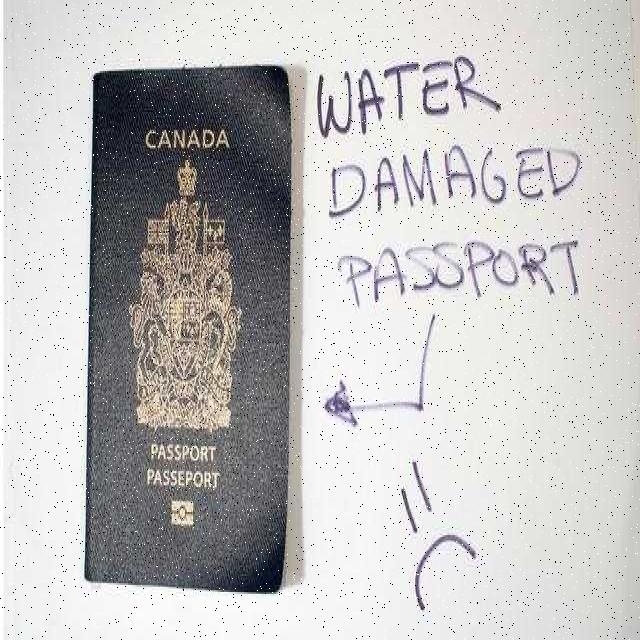 CANADA
PASSPORT
PASSEPORT
WATER
DAMAGED
PASSPORT